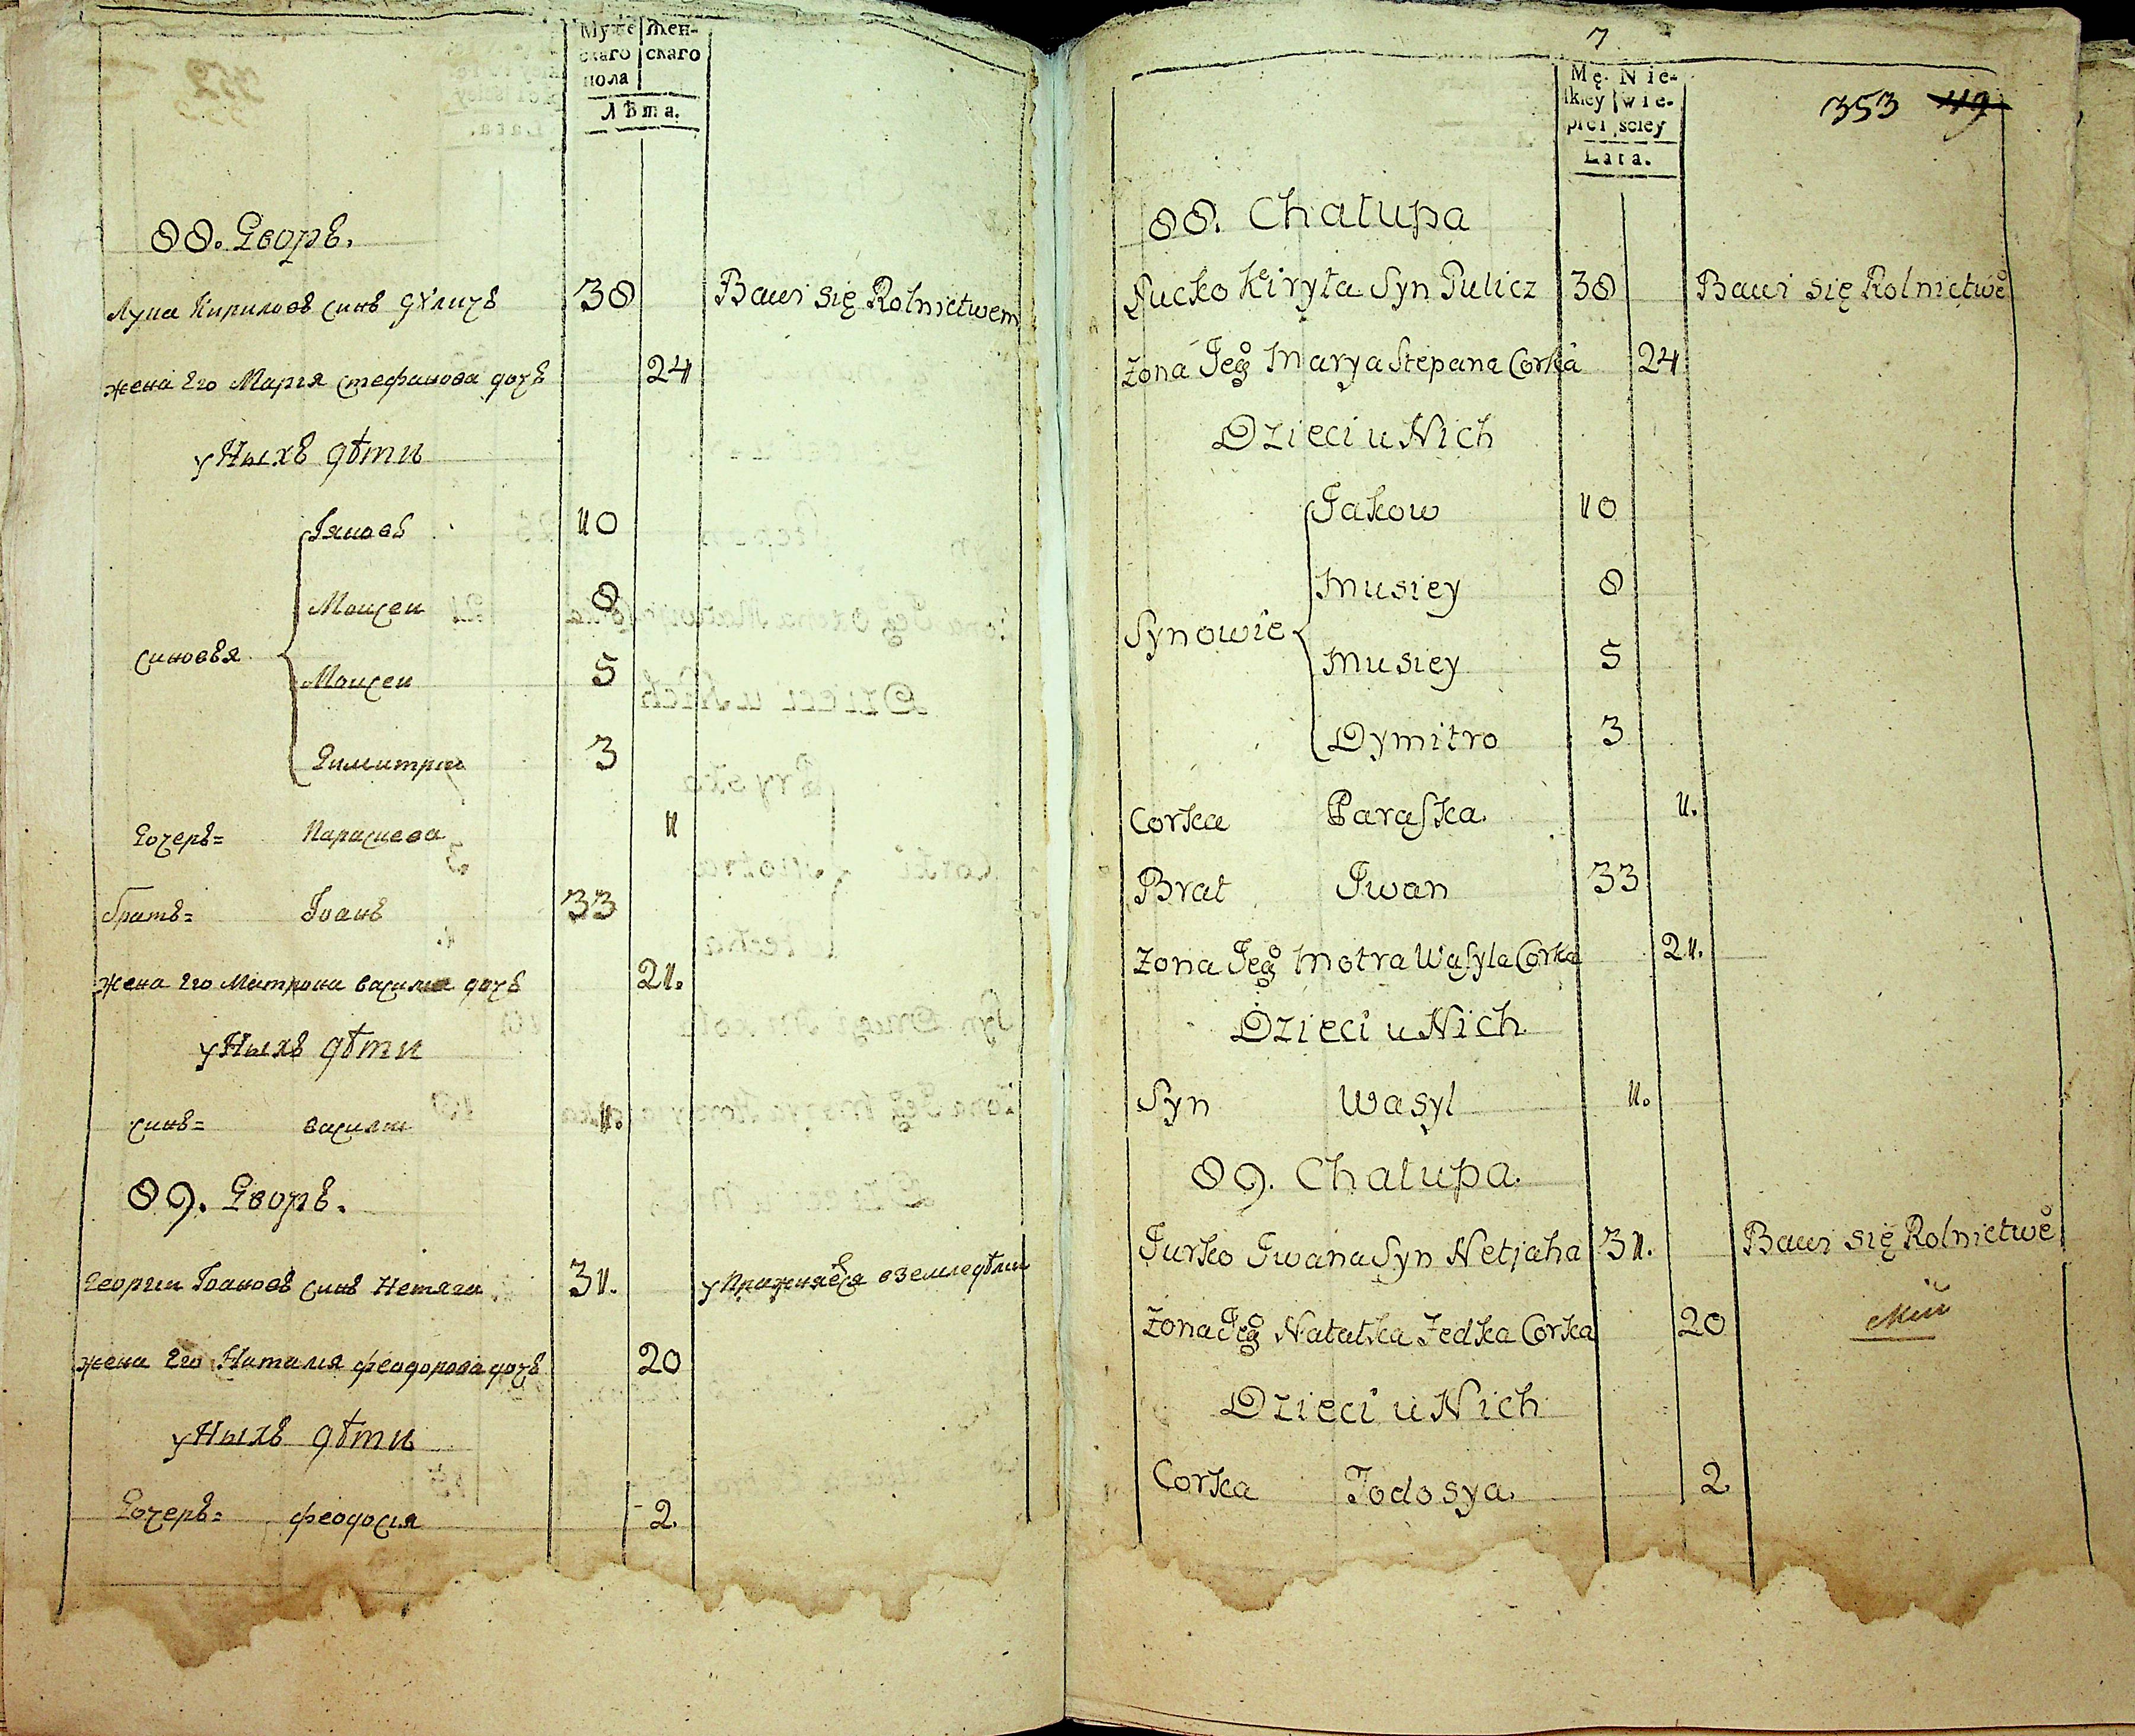 Муже Жен-
скаго скаго
пола
Лѣта.
88. Дворъ.
Лука Кириловъ синъ Дꙋличъ 38 Bawi się Rolnictwem
жена Его Марія Стефанова дочъ 24
у Ныхъ дѣти
синовья
Іяковъ 10
Моисеи 8
Моисеи 5
Димитрии 3
Дочеръ= Параскева 1
братъ= Іоанъ 33
жена Его Матрона василия дочъ 21.
у Ныхъ дѣти
синъ= василии 1.
89. Дворъ.
Георгии Іоановъ синъ Нетяга 31. упражняется вземледѣлии
жена Его Наталия феодорова дочъ 20
у Ныхъ дѣти
Дочеръ= феодосія 2.
7
Mę- Nie-
skiey wie-
płci sciey
Lata.
353 49
88. Chałupa
Łucko Kiryła Syn Dulicz 38 Bawi się Rolnictwẽ
Zona Jeg° Marya Stepana Corka 24
Dzieci u Nich
Synowie
Jakow 10
Musiey 8
Musiey 5
Dymitro 3
Corka Paraska. 1.
Brat Iwan 33
Zona Jeg° Motra Wasyla Corka 21.
Dzieci u Nich
Syn Wasyl 1.
89. Chałupa.
Jurko Iwana Syn Netjaha 31. Bawi się Rolnictwẽ
Zona Jeg° Natalka Fedka Corka 20
Dzieci u Nich
Corka Fodosya. 2